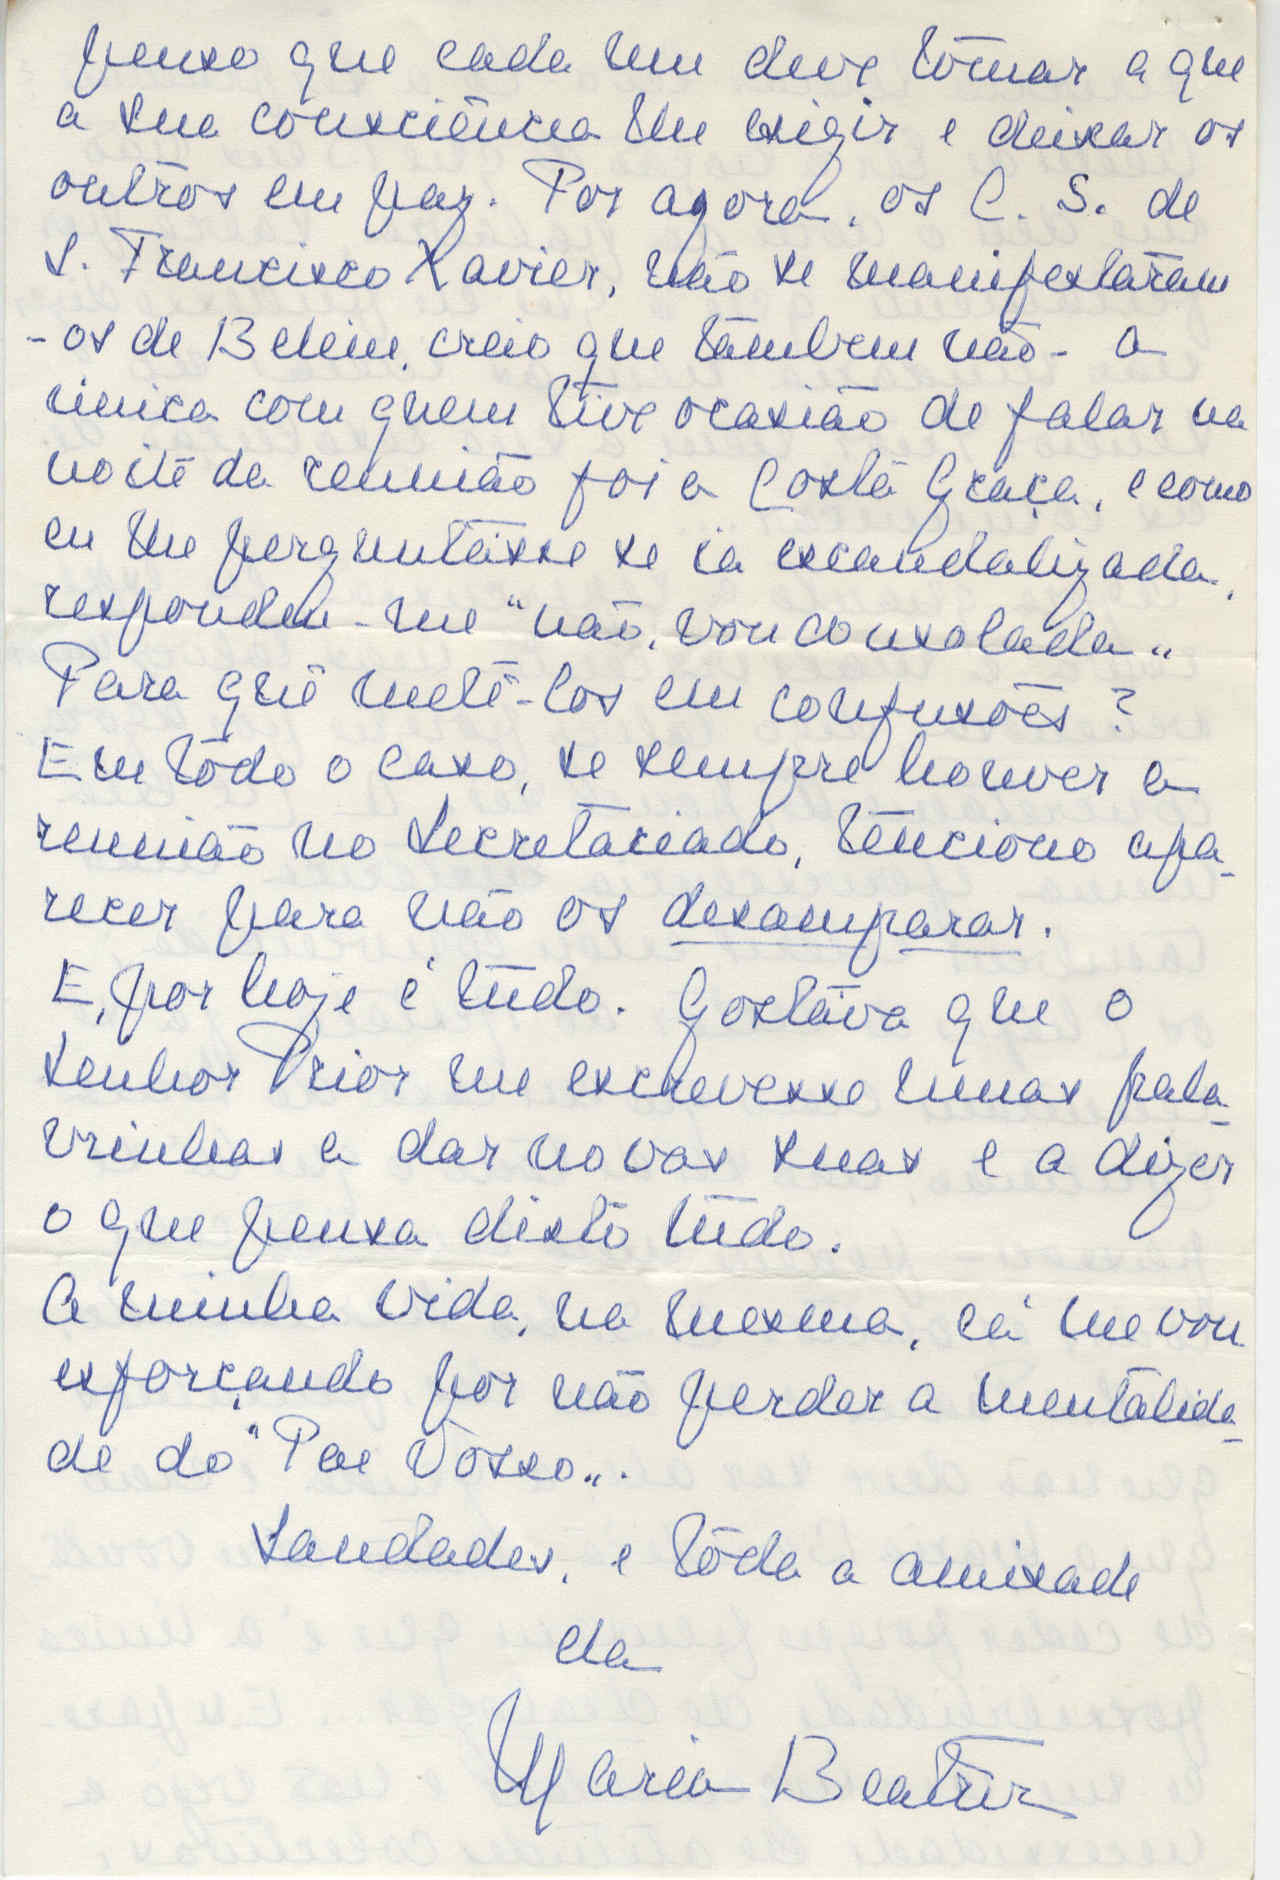 penso que cada um deve tomar a que
a sua consciência lhe exigir e deixar os
outros em paz. Por agora, os C. S. de
S. Francisco Xavier, não se manifestaram
- os de Belém, creio que também não - a
única com quem tive ocasião de falar na
noite da reunião foi a Costa Graça, e como
eu lhe perguntasse se ia escandalizada,
respondeu-me "não, vou consolada"
Para quê metê-los em confusões?
Em todo o caso, se sempre houver a
reunião no Secretariado, tenciono apa-
recer para não os desamparar.
E, por hoje é tudo. Gostava que o
Senhor Prior me escrevesse umas pala-
vrinhas a dar novas suas e a dizer
o que pensa disto tudo.
A minha vida, na mesma, cá me vou
esforçando por não perder a mentalida-
de do "Pae Vosso".
Saudades, e toda a amizade
da
Maria Beatriz